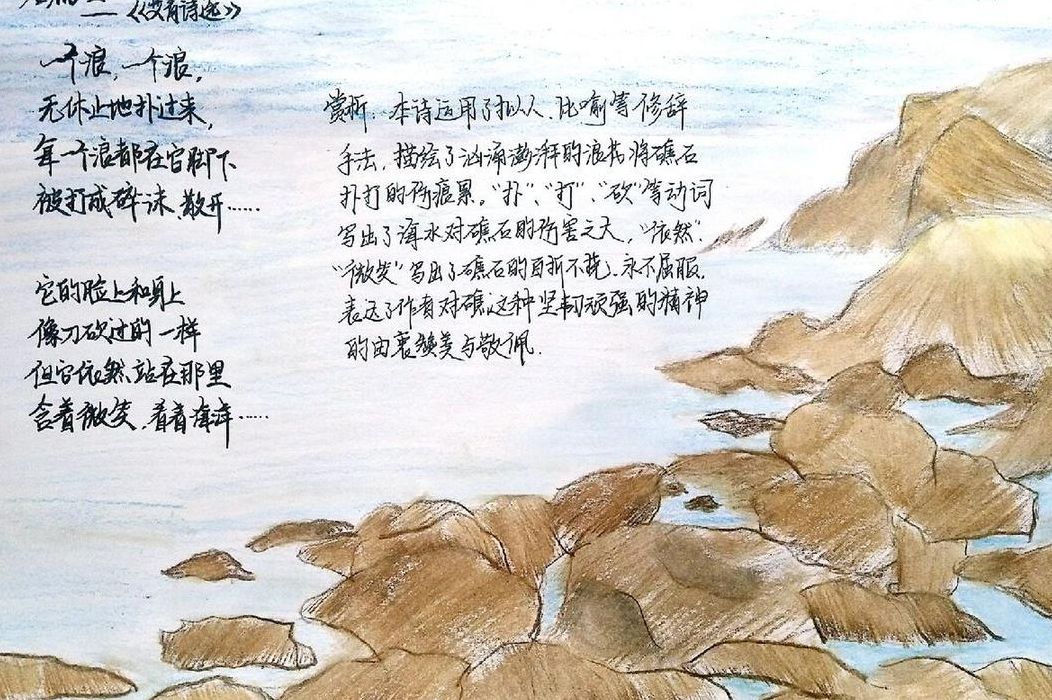 ——《艾青诗选》
一个浪，一个浪，
无休止地扑过来，
每一个浪都在它脚下
被打成碎沫、散开……
它的脸上和身上
像刀砍过的一样
但它依然站在那里
含着微笑，看着海洋……
赏析：本诗运用了拟人、比喻等修辞
手法，描绘了汹涌澎湃的浪花将礁石
扑打的伤痕累。“扑”、“打”、“砍”等动词
写出了海水对礁石的伤害之大，“依然”
“微笑”写出了礁石的百折不挠、永不屈服，
表达了作者对礁这种坚韧顽强的精神
的由衷赞美与敬佩.